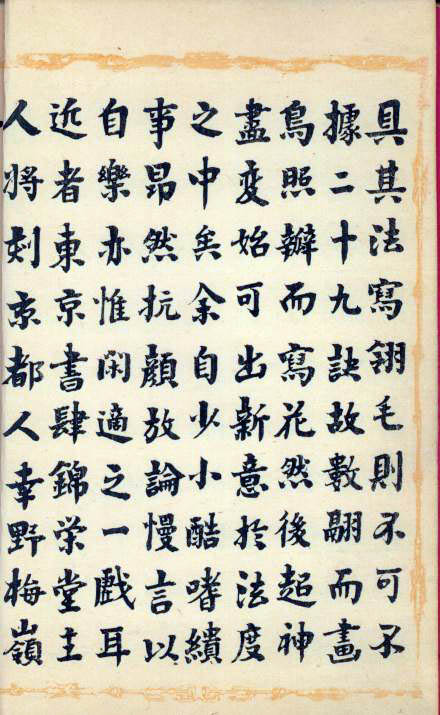 具其法寫翎毛則不可不
據二十九訣故數翮而畫
鳥照瓣而寫花然後超神
盡変始可出新意於法度
之中矣余自少小酷嗜繢
事昂然抗顔放論慢言以
自樂亦惟閑適之一戯耳
近者東京書肆錦栄堂主
人將刻京都人幸野梅嶺